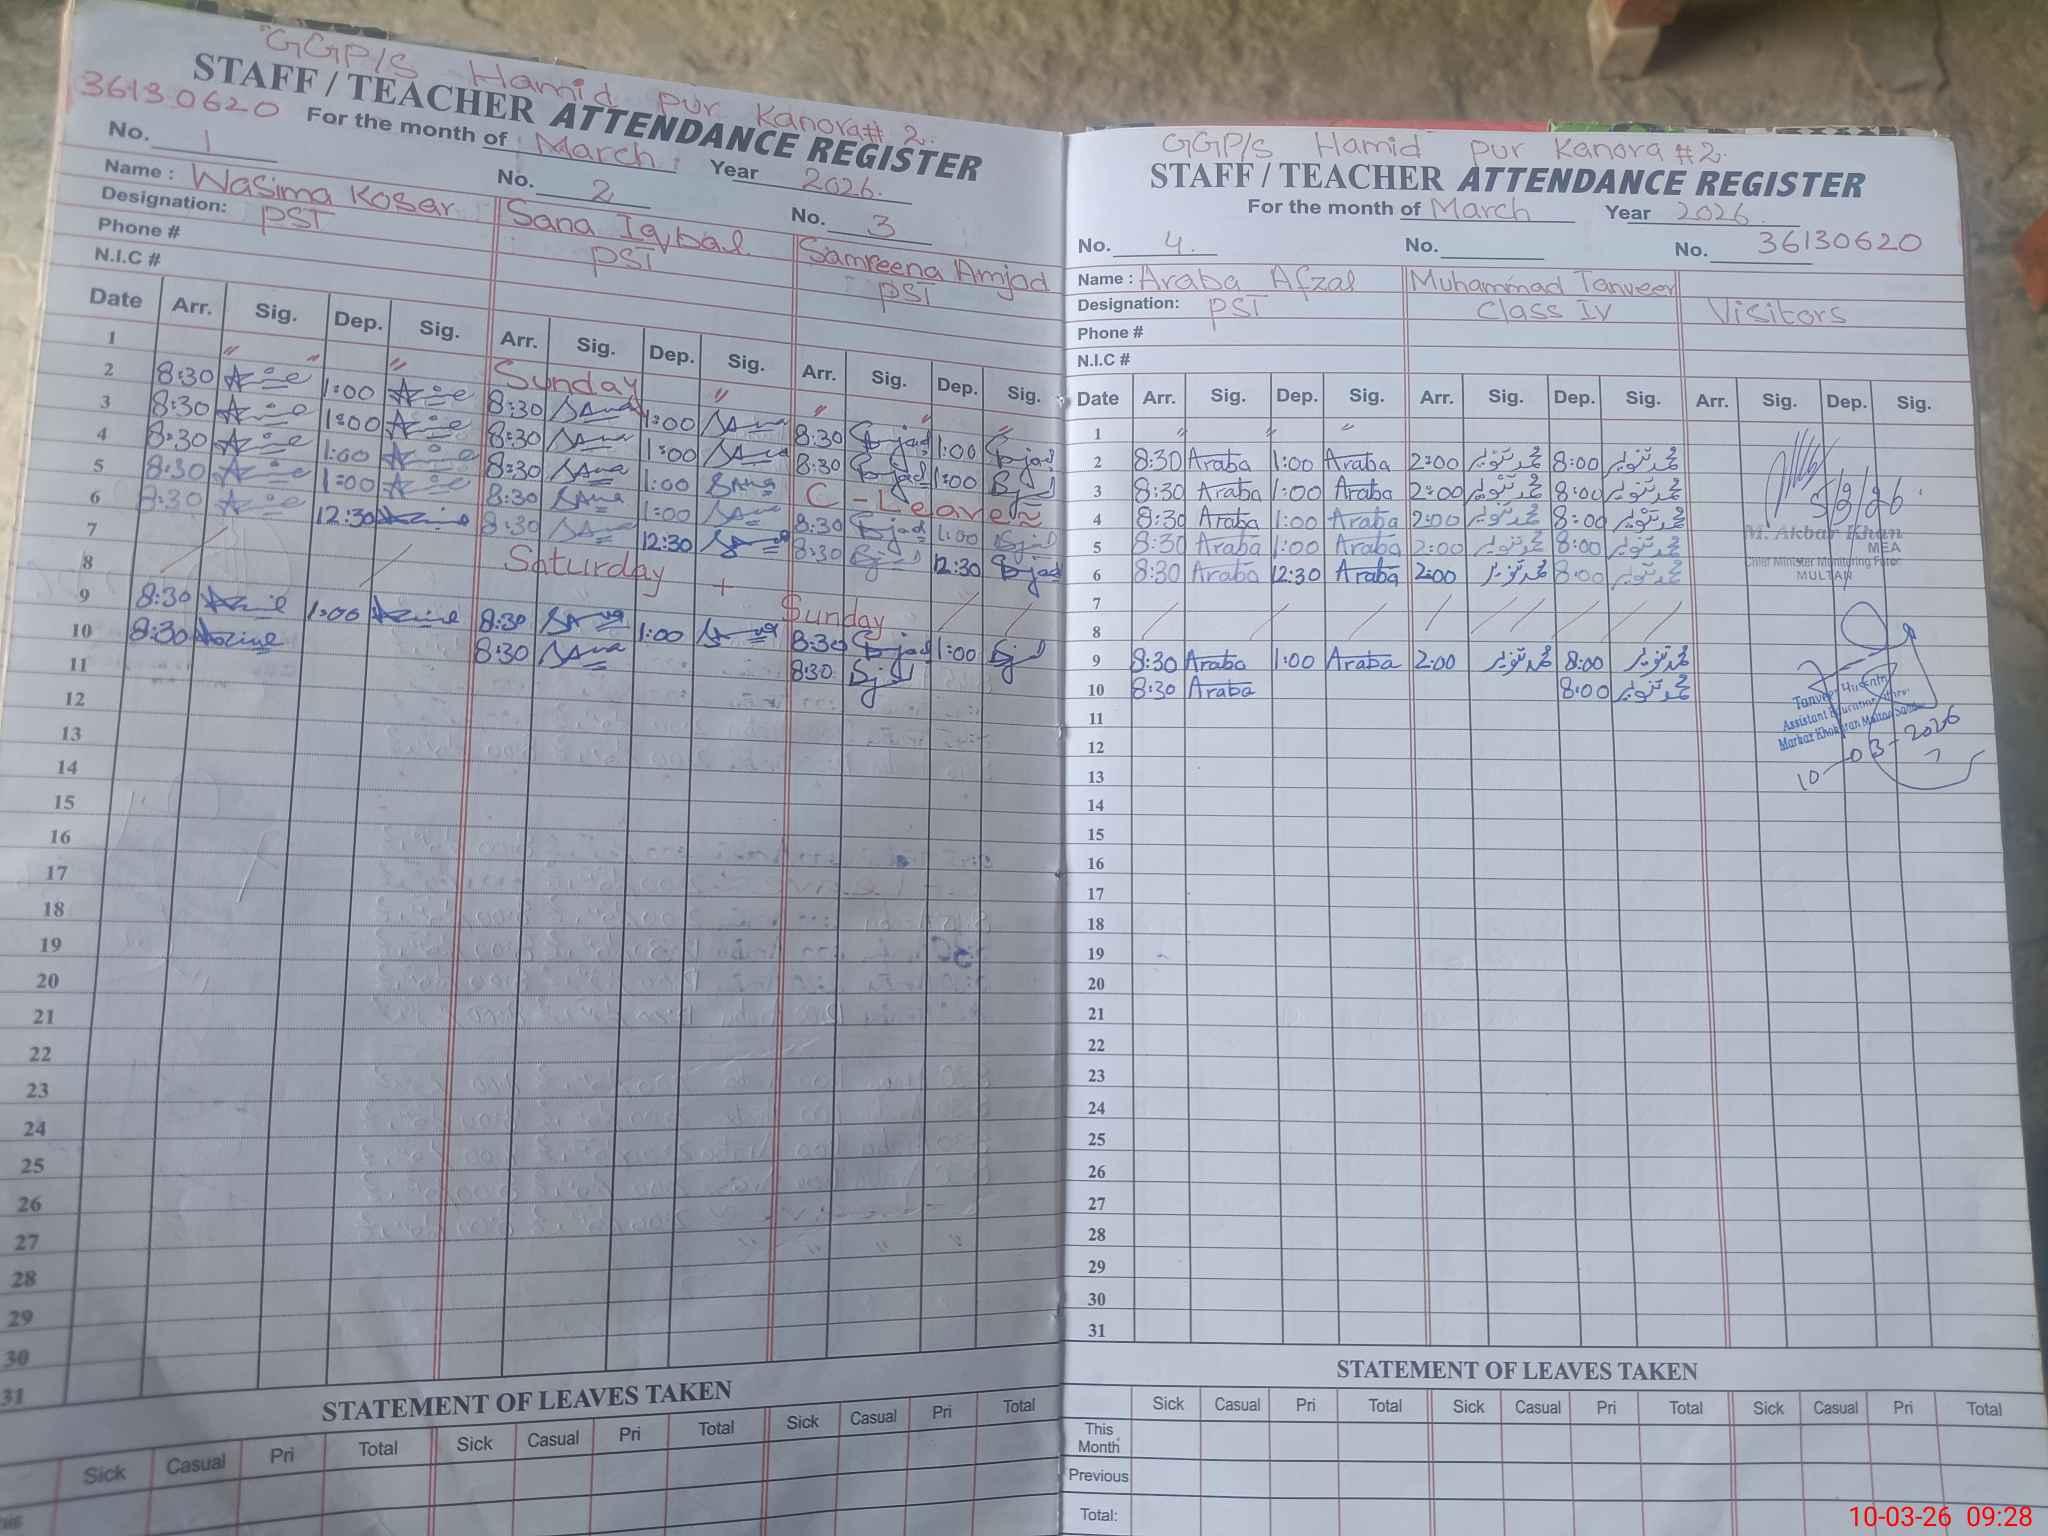 GGP/S Hamid pur Kanora # 2.
STAFF / TEACHER ATTENDANCE REGISTER
36130620 For the month of March Year 2026.
No. 1 No. 2 No. 3
Name : Wasima Kosar Sana Iqbal Samreena Amjad
Designation: PST PST PST
Phone #
N.I.C #
Date Arr. Sig. Dep. Sig. Arr. Sig. Dep. Sig. Arr. Sig. Dep. Sig.
1 " " " Sunday " " " "
2 8:30 1:00 8:30 Sana 1:00 Sana 8:30 1:00
3 8:30 1:00 8:30 Sana 1:00 Sana 8:30 1:00
4 8:30 1:00 8:30 Sana 1:00 Sana C - Leave
5 8:30 1:00 8:30 Sana 1:00 Sana 8:30 1:00
6 8:30 12:30 8:30 Sana 12:30 8:30 12:30
7
8 Saturday + Sunday
9 8:30 1:00 8:30 Sana 1:00 Sana 8:30 1:00
10 8:30 8:30 Sana 8:30
11
12
13
14
15
16
17
18
19
20
21
22
23
24
25
26
27
28
29
30
31
STATEMENT OF LEAVES TAKEN
Sick Casual Pri Total Sick Casual Pri Total Sick Casual Pri Total
GGP/S Hamid pur Kanora # 2.
STAFF / TEACHER ATTENDANCE REGISTER
For the month of March Year 2026.
No. 4. No. No. 36130620
Name : Araba Afzal Muhammad Tanveer
Designation: PST Class IV Visitors
Phone #
N.I.C #
Date Arr. Sig. Dep. Sig. Arr. Sig. Dep. Sig. Arr. Sig. Dep. Sig.
1 " " "
2 8:30 Araba 1:00 Araba 2:00 محمد تنویر 8:00 محمد تنویر
3 8:30 Araba 1:00 Araba 2:00 محمد تنویر 8:00 محمد تنویر 5/3/26
4 8:30 Araba 1:00 Araba 2:00 محمد تنویر 8:00 محمد تنویر M. Akbar Khan
5 8:30 Araba 1:00 Araba 2:00 محمد تنویر 8:00 محمد تنویر MEA
Chief Minister Monitoring Force
6 8:30 Araba 12:30 Araba 2:00 محمد تنویر 8:00 محمد تنویر MULTAN
7
8
9 8:30 Araba 1:00 Araba 2:00 محمد تنویر 8:00 محمد تنویر
10 8:30 Araba 8:00 محمد تنویر Tanveer Hussain
Assistant Education Officer
Markaz Multan Saddar
11
12 10-03-2026
13
14
15
16
17
18
19
20
21
22
23
24
25
26
27
28
29
30
31
STATEMENT OF LEAVES TAKEN
Sick Casual Pri Total Sick Casual Pri Total Sick Casual Pri Total
This Month
Previous
Total:
10-03-26 09:28